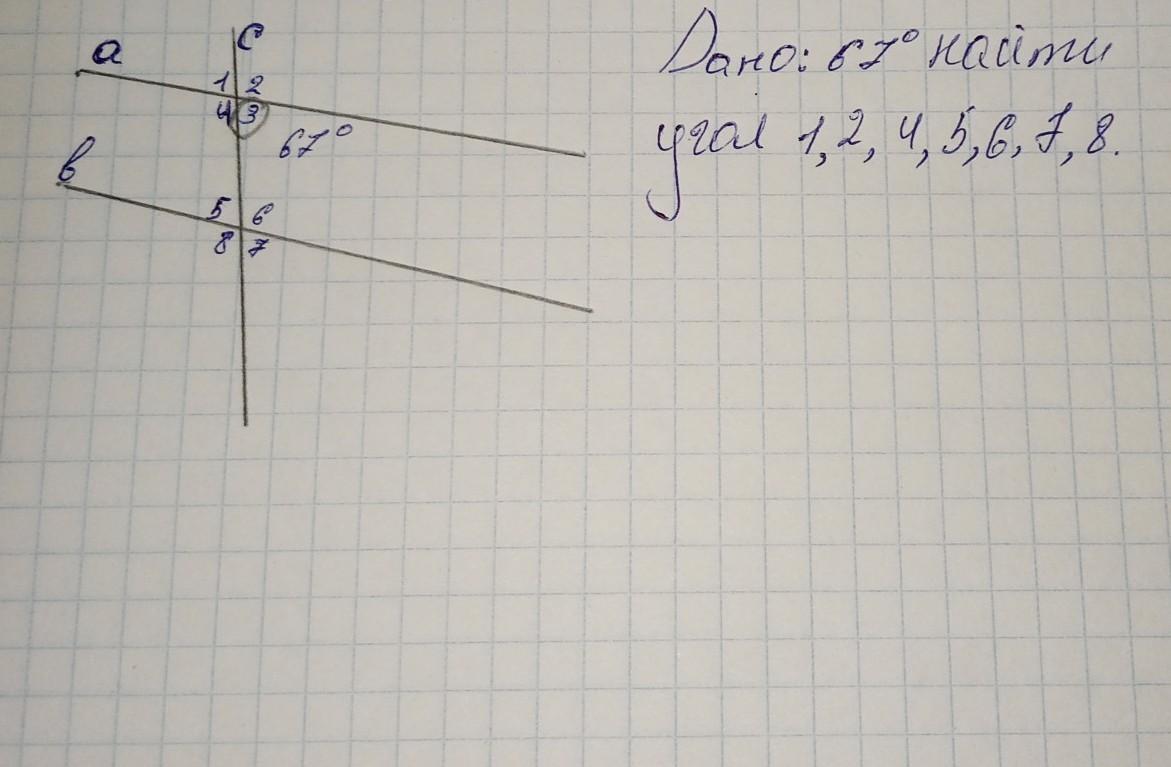 a
c
1 2
4 3
67°
в
5 6
8 7
Дано: 67° найти
угол 1, 2, 4, 5, 6, 7, 8.